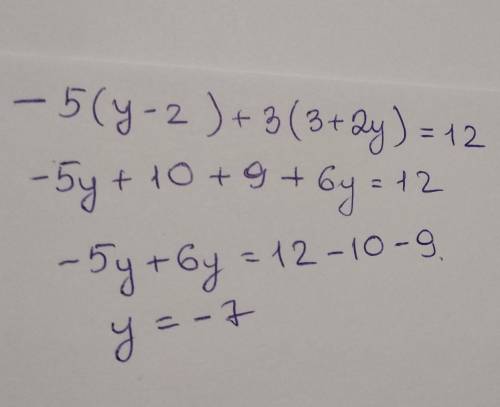 - 5(y-2)+3(3+2y)=12
-5y+10+9+6y=12
-5y+6y=12-10-9.
y=-7